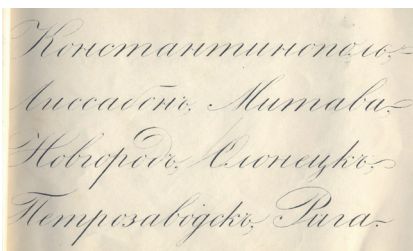 Константинополь.
Лиссабонъ. Митава.
Новгородъ. Олонецкъ.
Петрозаводскъ. Рига.